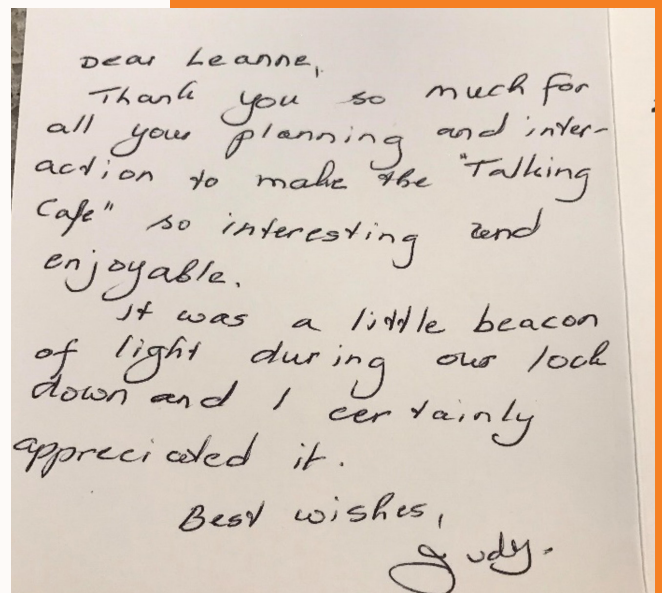 Dear Leanne,
Thank you so much for
all your planning and inter-
action to make the "Talking
Cafe" so interesting and
enjoyable.
It was a little beacon
of light during our lock
down and I certainly
appreciated it.
Best wishes,
Judy.